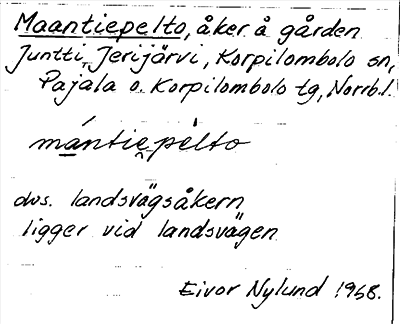 Maantiepelto, åker å gården
Juntti, Jerijärvi, Korpilombolo sn,
Pajala o. Korpilombolo tg, Norrb.l.
mántiepèlto
dvs. landsvägsåkern
ligger vid landsvägen
Eivor Nylund 1968.